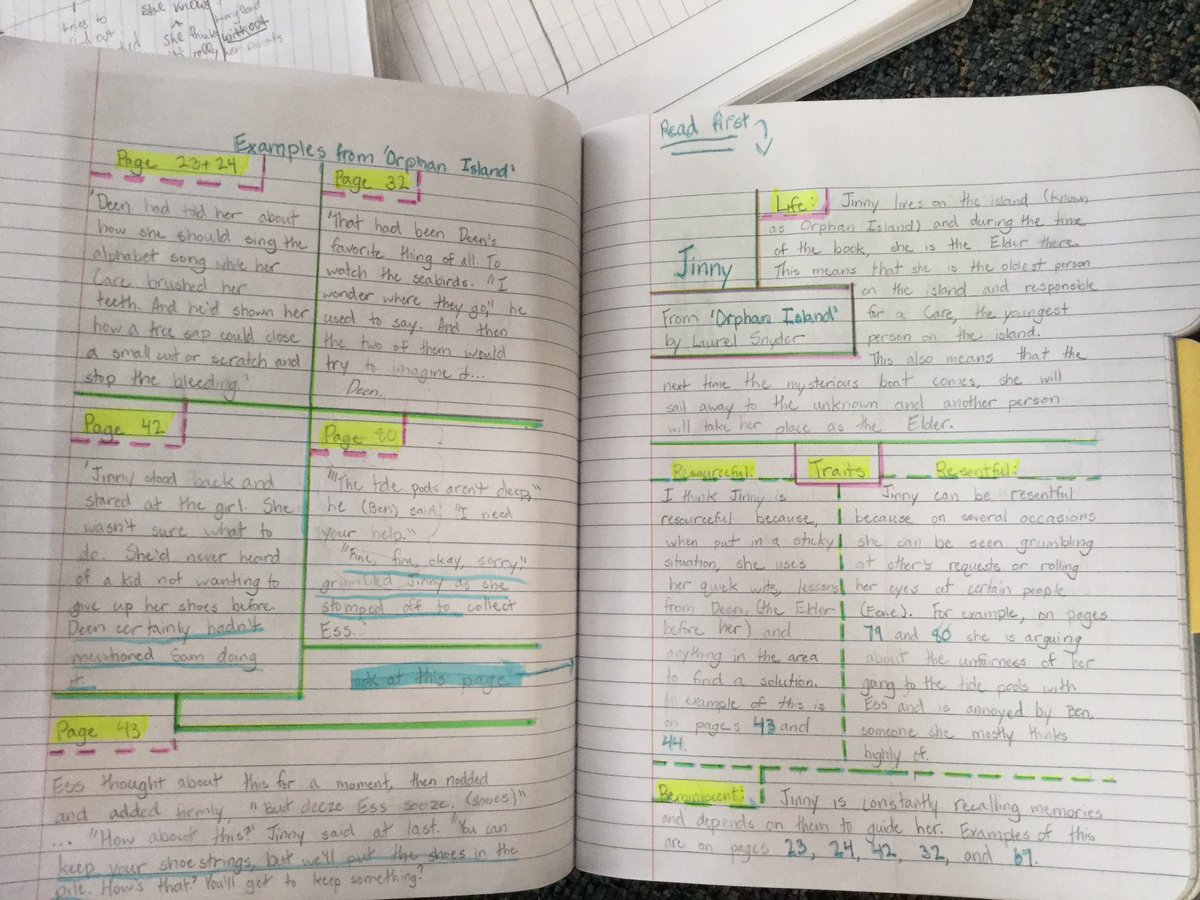 she knows
tries to
she thinks without
really her parents
Examples from 'Orphan Island'
Page 23+24
'Deen had told her about
how she should sing the
alphabet song while her
Care brushed her
teeth. And he'd shown her
how a tree sap could close
a small cut or scratch and
stop the bleeding.'
Page 32
'That had been Deen's
favorite thing of all. To
watch the seabirds. "I
wonder where they go," he
used to say. And then
the two of them would
try to imagine it...
Deen.
Page 42
'Jinny stood back and
stared at the girl. She
wasn't sure what to
do. She'd never heard
of a kid not wanting to
give up her shoes before.
Deen certainly hadn't
mentioned Sam doing
it.
Page 80
'"The tide pods aren't deep,"
he (Ben) said. "I need
your help."
"Fine, fine, okay, sorry,"
grumbled Jinny as she
stomped off to collect
Ess...'
look at this page
Page 43
Ess thought about this for a moment, then nodded
and added firmly, "But deeze Ess sooze. (shoes)"
... "How about this?" Jinny said at last. "You can
keep your shoestrings, but we'll put the shoes in the
pile. How's that? You'll get to keep something?
Read first
Jinny
From 'Orphan Island'
by Laurel Snyder
Life: Jinny lives on the island (known
as Orphan Island) and during the time
of the book, she is the Elder there.
This means that she is the oldest person
on the island and responsible
for a Care, the youngest
person on the island.
This also means that the
next time the mysterious boat comes, she will
sail away to the unknown and another person
will take her place as the Elder.
Traits
Resourceful:
I think Jinny is
resourceful because,
when put in a sticky
situation, she uses
her quick wits, lessons
from Deen, (the Elder
before her) and
anything in the area
to find a solution.
An example of this is
on pages 43 and
44.
Resentful:
Jinny can be resentful
because on several occasions
she can be seen grumbling
at other's requests or rolling
her eyes at certain people
(Eevie). For example, on pages
79 and 80 she is arguing
about the unfairness of her
going to the tide pools with
Ess and is annoyed by Ben,
someone she mostly thinks
highly of.
Reminiscent: Jinny is constantly recalling memories
and depends on them to guide her. Examples of this
are on pages 23, 24, 42, 32, and 67.